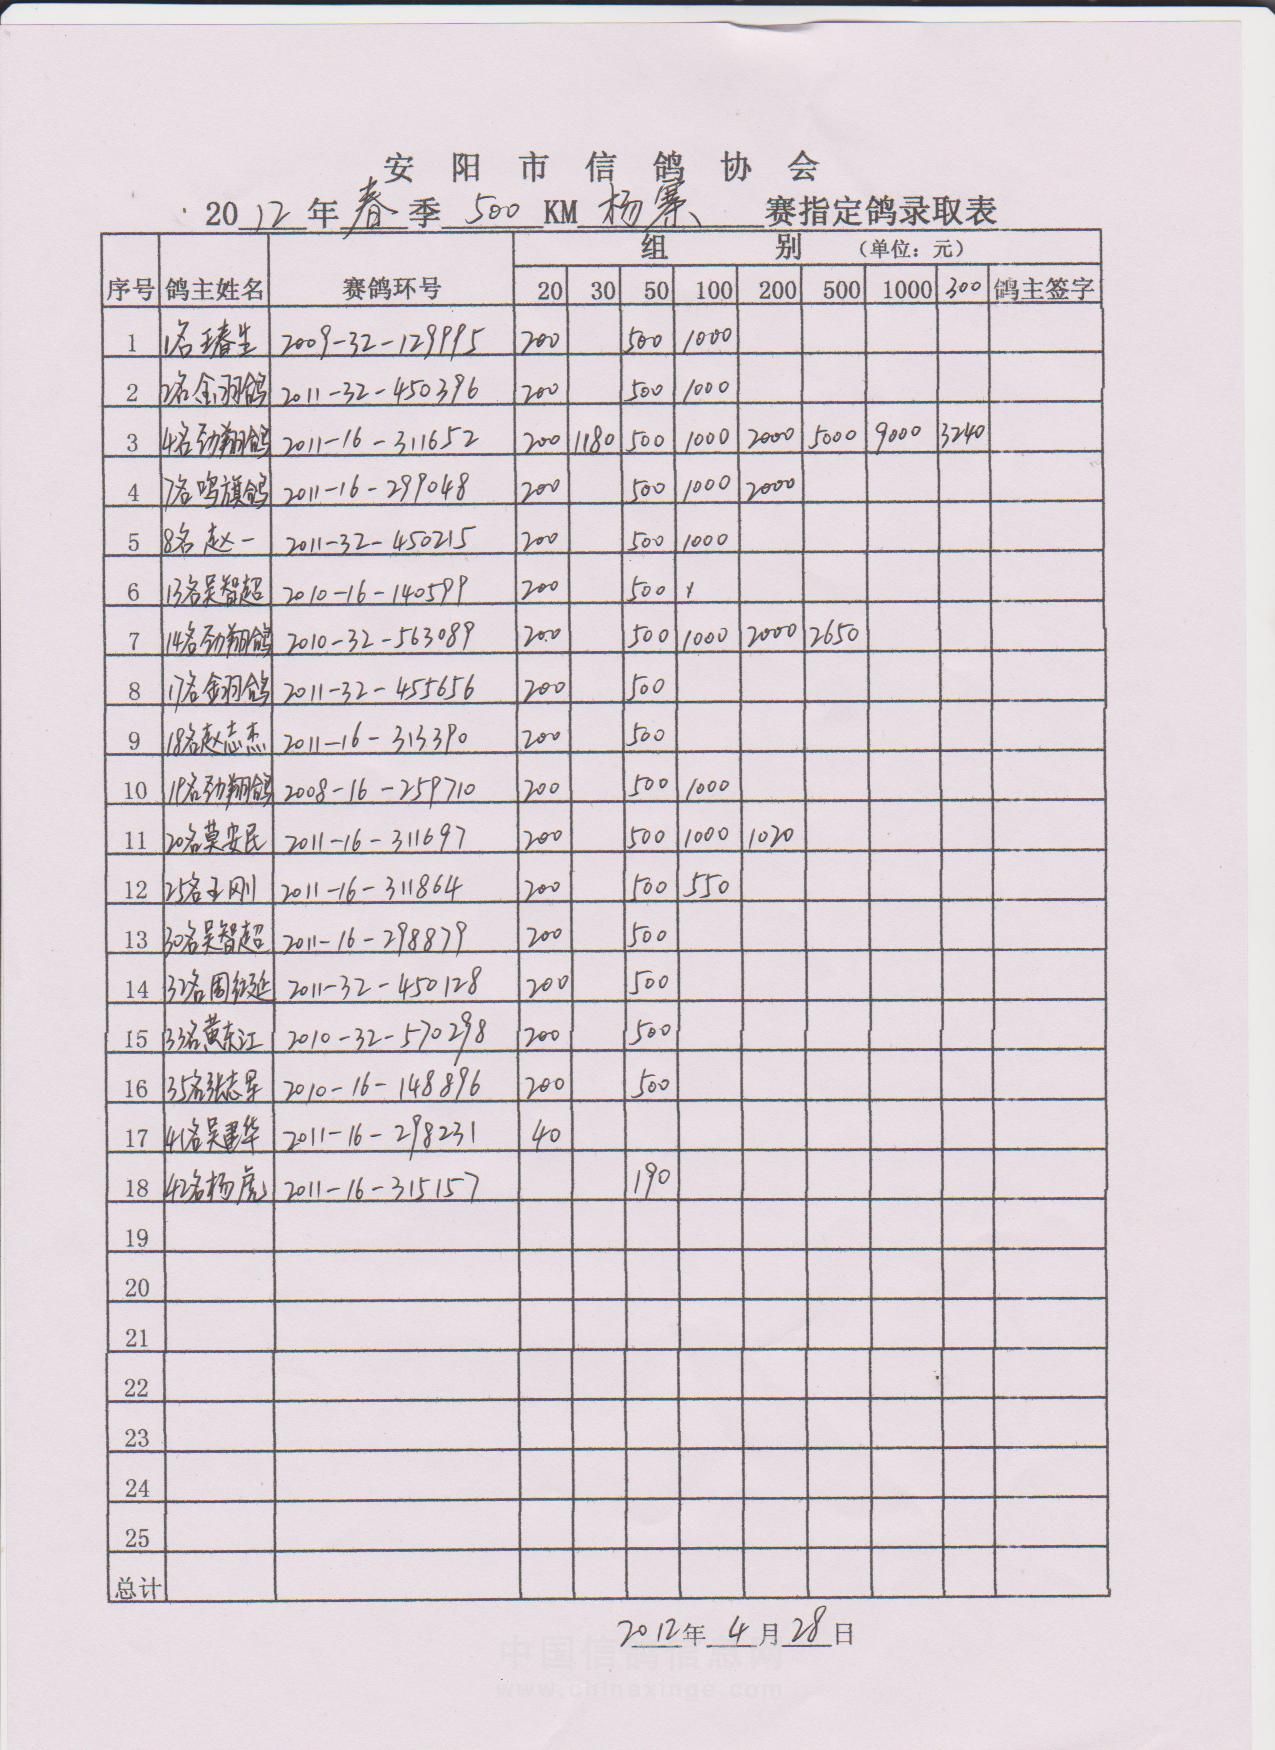 安阳市信鸽协会
2012年春季500KM杨寨赛指定鸽录取表
序号 鸽主姓名 赛鸽环号 组别 (单位：元)
20 30 50 100 200 500 1000 300 鸽主签字
1 1名王春生 2009-32-129995 200 500 1000
2 2名金羽鸽 2011-32-450396 200 500 1000
3 4名劲翔鸽 2011-16-311652 200 1180 500 1000 2000 5000 9000 3240
4 7名鸣旗鸽 2011-16-299048 200 500 1000 2000
5 8名赵一 2011-32-450215 200 500 1000
6 13名吴智超 2010-16-140599 200 500
7 14名劲翔鸽 2010-32-563089 200 500 1000 2000 2650
8 17名金羽鸽 2011-32-455656 200 500
9 18名赵志杰 2011-16-313390 200 500
10 19名劲翔鸽 2008-16-259710 200 500 1000
11 20名莫安民 2011-16-311697 200 500 1000 1020
12 25名王刚 2011-16-311864 200 500 550
13 30名吴智超 2011-16-298879 200 500
14 32名周红延 2011-32-450128 200 500
15 33名黄东江 2010-32-570298 200 500
16 35名张志军 2010-16-148896 200 500
17 41名吴建华 2011-16-298231 40
18 42名杨虎 2011-16-315157 190
19
20
21
22
23
24
25
总计
2012年4月28日
中国信鸽信息网
www.chinaxinge.com